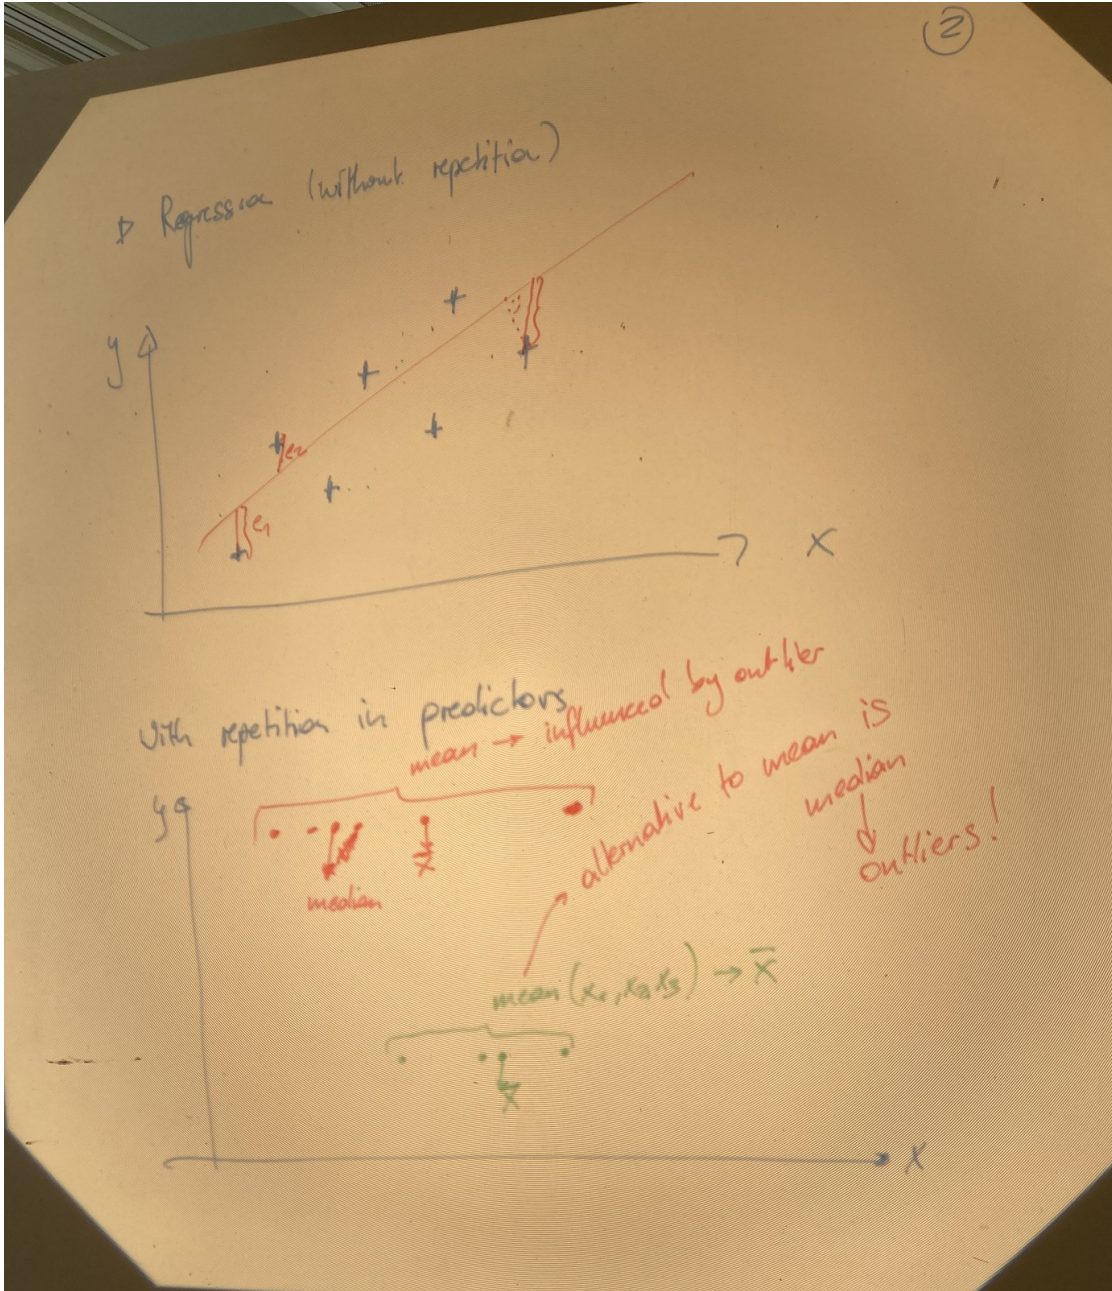 2
Regression (without repetition)
y
e2
e1
x
With repetition in predictors
mean → influenced by outlier
alternative to mean is
median
outliers!
y
x̄
median
mean (x1, x2, x3) → x̄
x̄
x